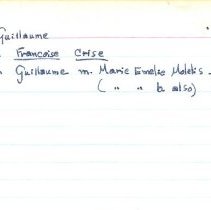 Guillaume
Francoise Crise
Guillaume m. Marie Emelie Moletis
( " " b. also)